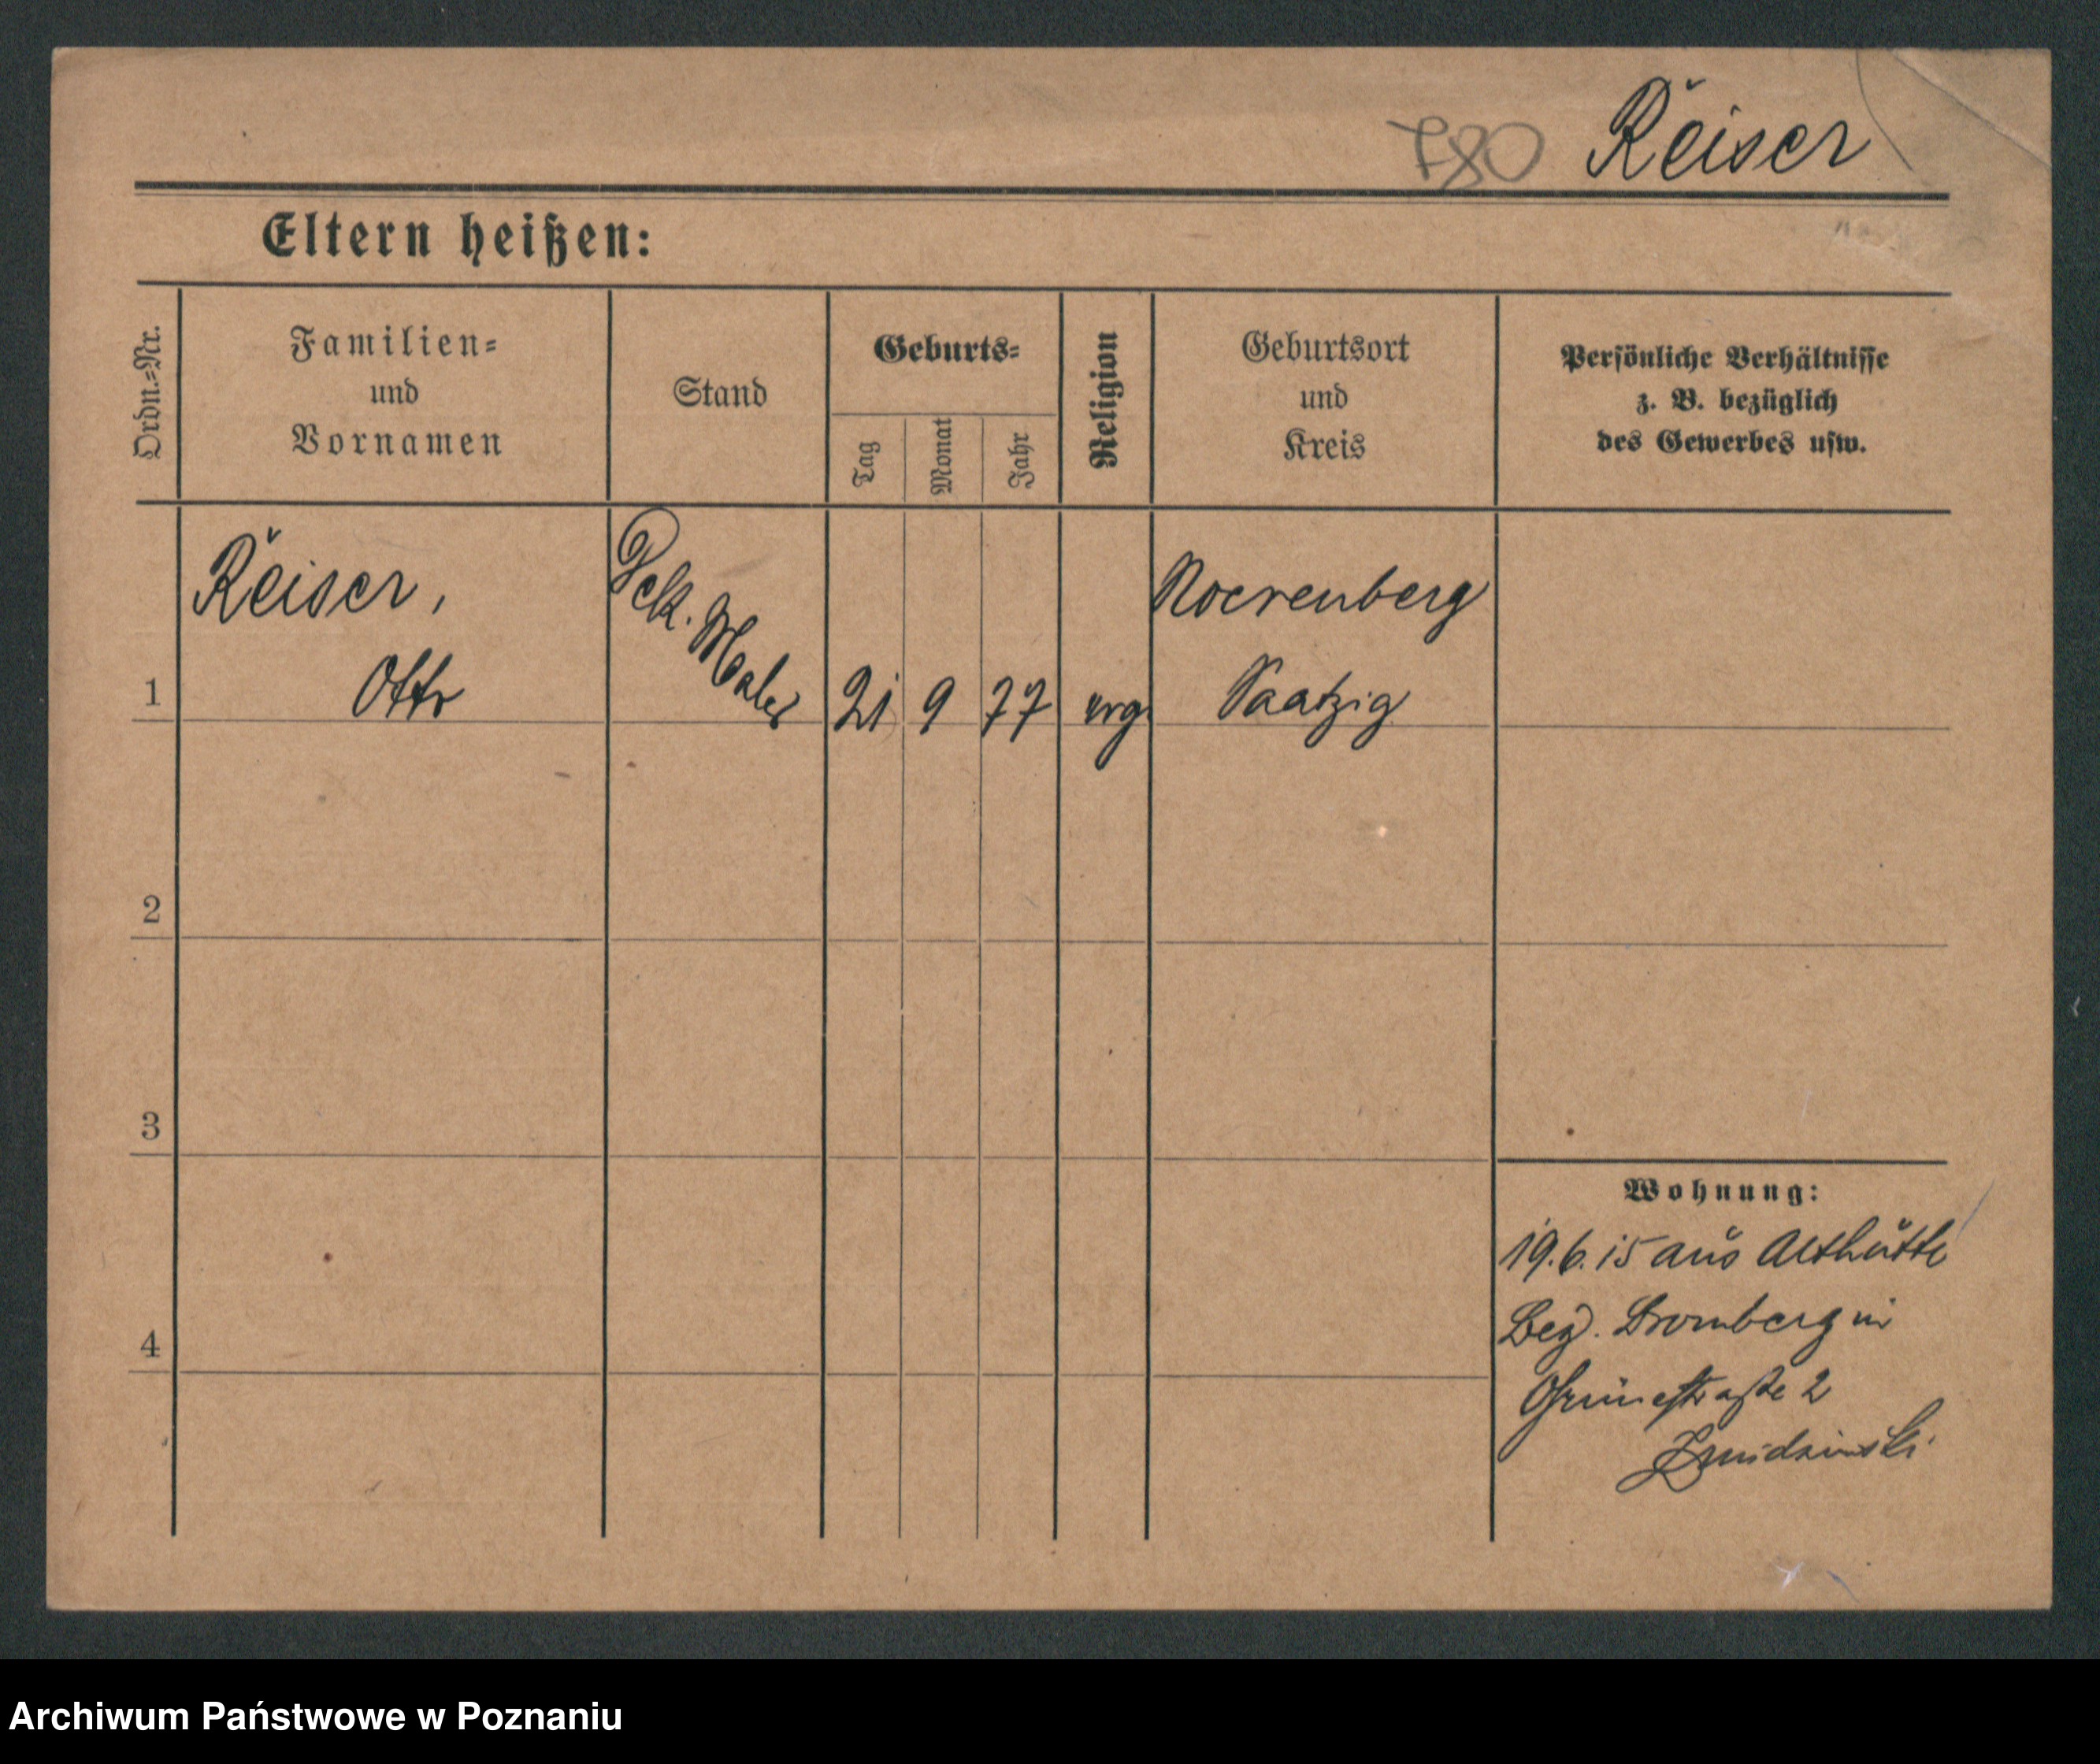 780 Reiser
Eltern heißen:
Ordn.=Nr.
Familien=
und
Vornamen
Stand
Geburts=
Tag
Monat
Jahr
Religion
Geburtsort
und
Kreis
Persönliche Verhältnisse
z. B. bezüglich
des Gewerbes usw.
Reiser,
Otto
Dek. Maler
1
21 9 77
Noerenberg
Saatzig
2
3
4
Wohnung:
19.6.15 aus Althütte
Bez. Bromberg in
Grünestraße 2
Archiwum Państwowe w Poznaniu